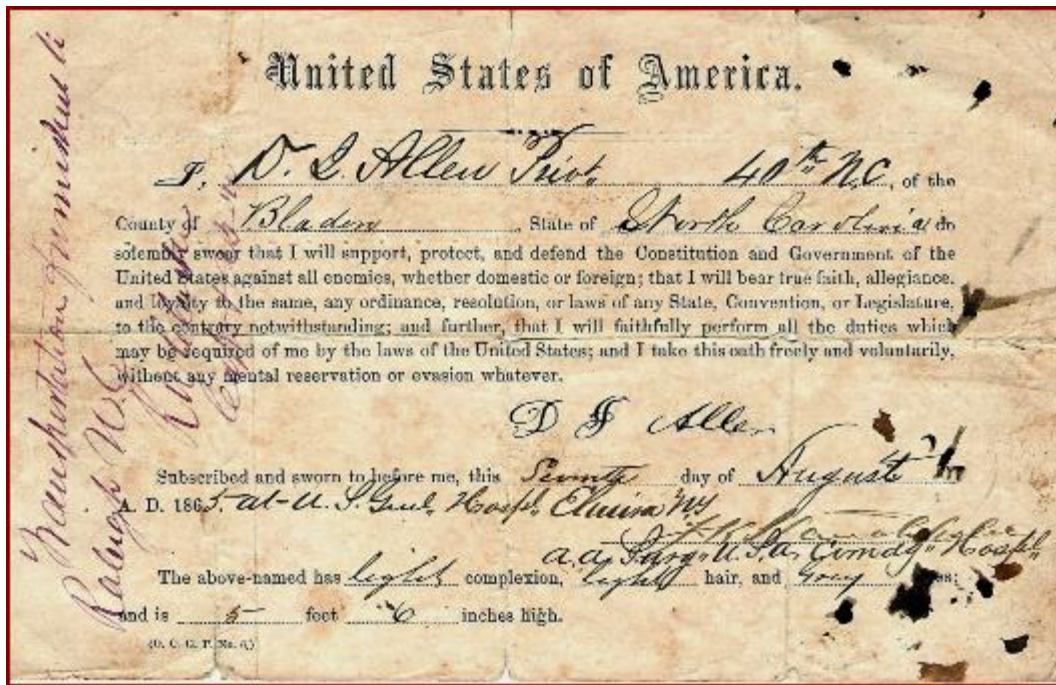 United States of America.
I, D. J. Allen Privt. 40th N.C., of the
County of Bladen, State of North Carolina do
solemnly swear that I will support, protect, and defend the Constitution and Government of the
United States against all enemies, whether domestic or foreign; that I will bear true faith, allegiance,
and loyalty to the same, any ordinance, resolution, or laws of any State, Convention, or Legislature,
to the contrary notwithstanding; and further, that I will faithfully perform all the duties which
may be required of me by the laws of the United States; and I take this oath freely and voluntarily,
without any mental reservation or evasion whatever.
D J Allen
Subscribed and sworn to before me, this day of August
A. D. 1865. at U. S. Genl. Hospl. Elmira NY
a. a. Surg. U.S.A. Comdg. Hospl.
The above-named has light complexion, light hair, and Grey eyes;
and is 5 feet 6 inches high.
Transportation furnished to
Raleigh N.C.